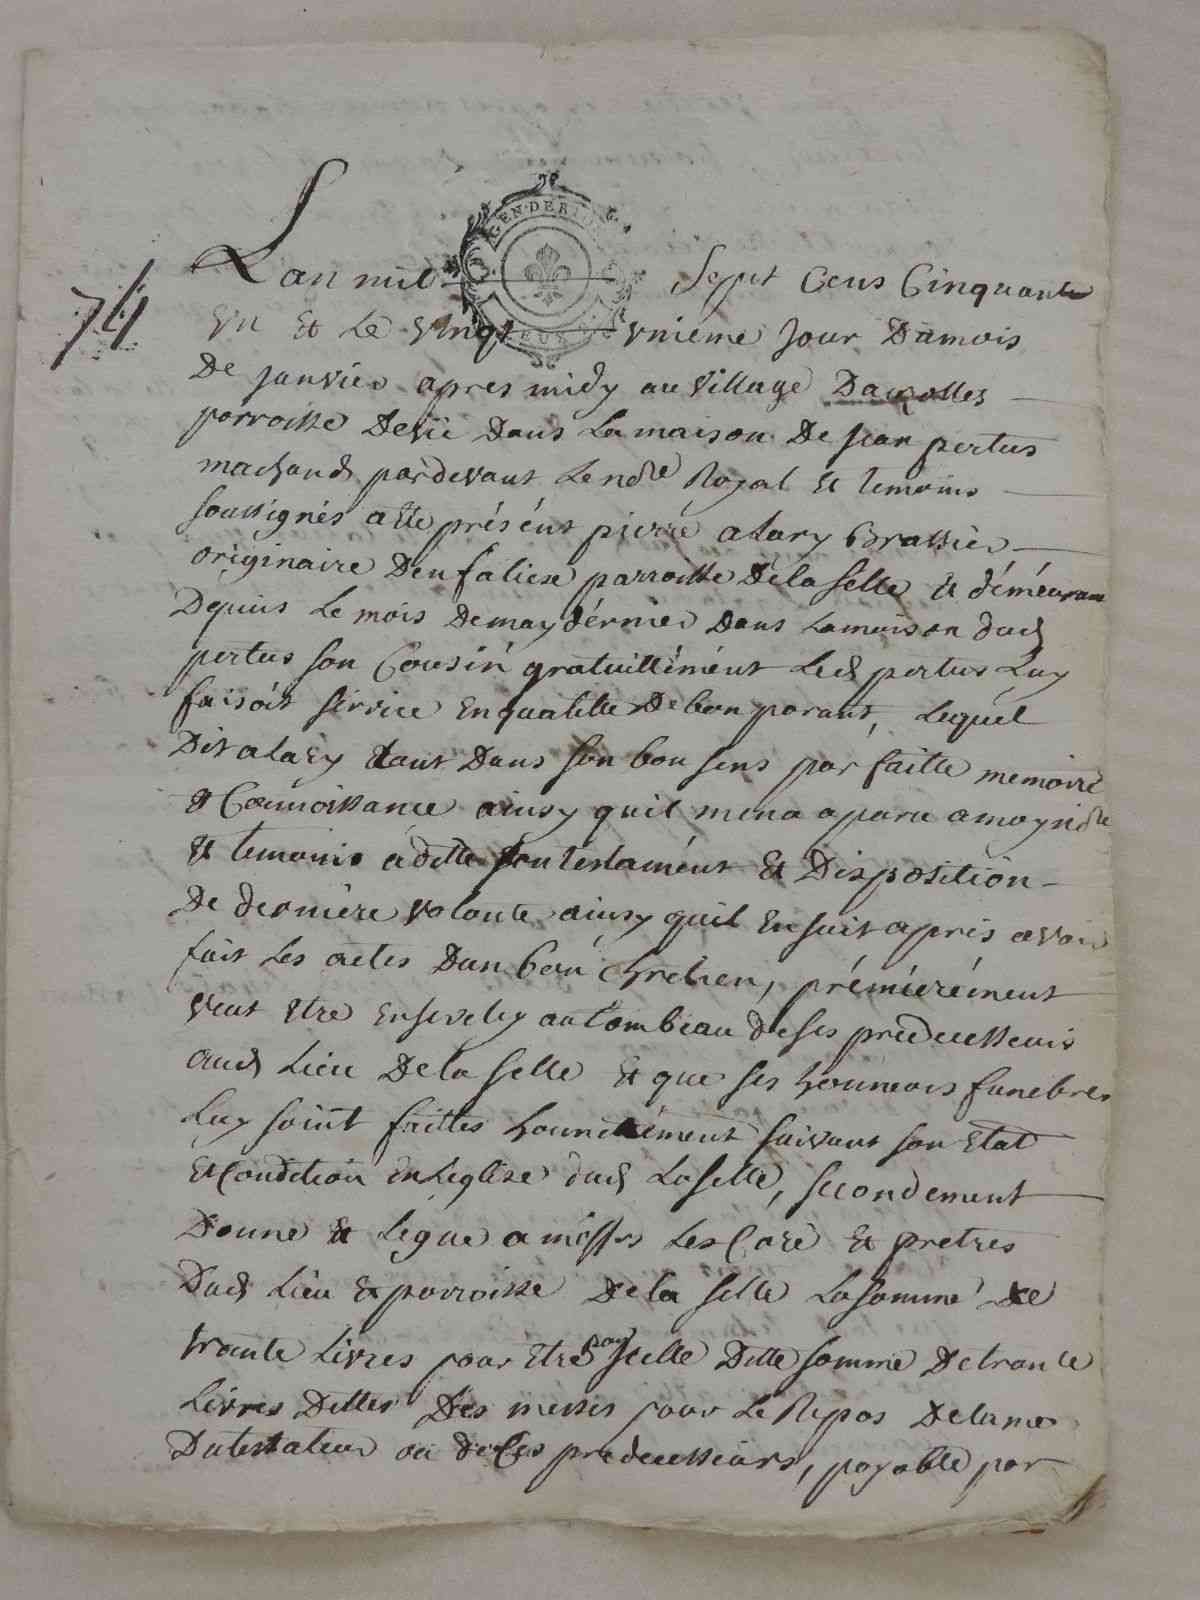 74
GEN·DE
L'an mil Sept Cens Cinquante
Un Et Le Vingt vnieme Jour Dumois
De janvier apres midy au village Dauzolles
parroisse Devic Dans La maison De jean pertus
marchand pardevant Le nore Royal Et temoins
soussignés a Ete présént pierre alary Brassier
originaire Denfalieze parroisse De la selle Et déméurant
Depuis Le mois Demay dérnier Dans La maison dud
pertus son Cousin gratuittémént Led pertus Luy
faisoit service En qualitte De bon parant, Lequél
Dit alary Etant Dans son bon sens parfaitte memoire
& Connoissance ainsy quil mena aparu amoy nore
Et temoins a ditte son testamént Et Disposition
De derniére volonte ainsy quil Ensuit apres avoir
fait Les actes Dun bon Chretien, prémiérémeut
veut Etre Ensevely autombeau de ses predecesseurs
aud Lieu De la selle Et que ses honneurs funebres
Luy soint faittes hounettément suivant son Etat
Et Condition En Leglize dud La selle, secondement
Donne Et Legue a messrs Les Curé Et pretres
Dud Lieu Et parroisse De la selle La somme De
trante Livres pour Etre Jcelle Ditte somme De trante
Livres Dittes Des messes pour Le Repos De lame
Dutestateur ou de ses predecesseurs, payable par